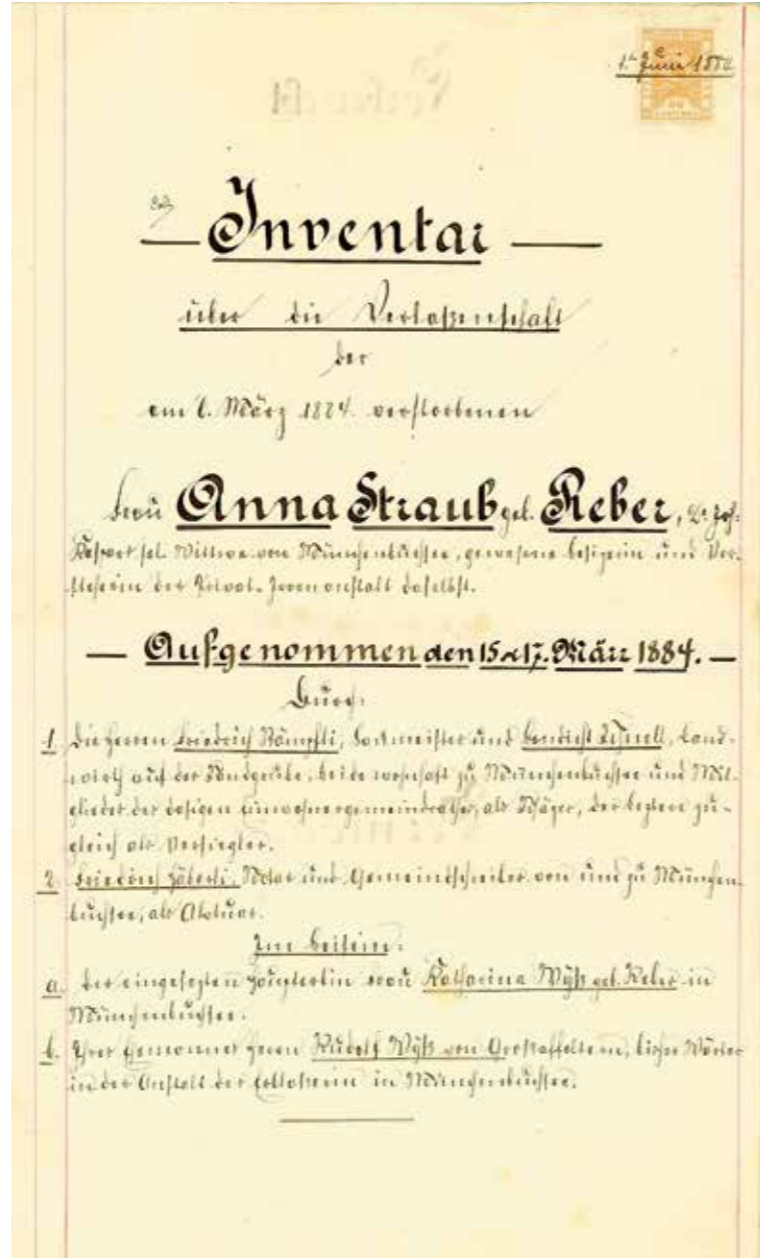 1. Juni 1884
Inventar
über die Verlaßenschaft
der
am 6. März 1884. verstorbenen
Frau Anna Straub geb. Reber, Joh.
Kaspars sel. Wittwe von Münchenbuchsee, gewesene Besizerin und Vor-
steherin der Privat-Irrenanstalt daselbst.
Aufgenommen den 15 & 17. März 1884.
Durch:
1. Die Herren Friedrich Stämpfli, und Bendicht Schnell, Land-
wirth auf der beide wohnhaft zu Münchenbuchsee und Mit-
glieder des dasigen Einwohnergemeindrathes, als Schäzer, der leztere zu-
gleich als Versiegler.
2. Friedrich Häberli, Notar und Gemeindschreiber von und zu München-
buchsee, als Aktuar.
Im Beisein:
a. Der eingesezten Haupterbin Frau Katharina Wyß geb. Reber in
Münchenbuchsee.
b. Ihres Ehemannes Herrn Rudolf Wyß von Großaffoltern, bisher Wärter
in der Anstalt der Erblaßerin in Münchenbuchsee.